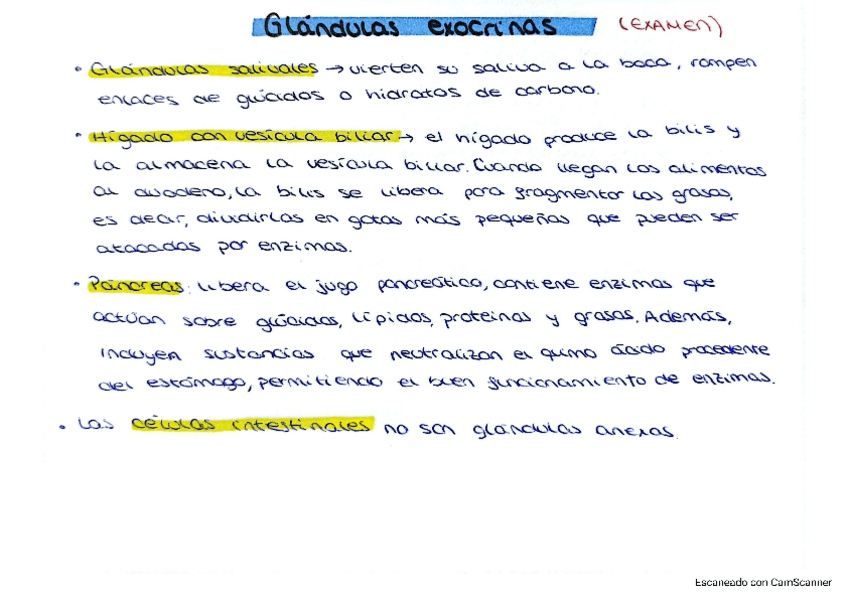 Glándulas exocrinas (EXAMEN)
• Glándulas salivales → vierten su saliva a la boca, rompen
enlaces de glúcidos o hidratos de carbono.
• Hígado con vesícula biliar → el hígado produce la bilis y
la almacena la vesícula biliar. Cuando llegan los alimentos
al duodeno, la bilis se libera para fragmentar las grasas,
es decir, dividirlas en gotas más pequeñas que pueden ser
atacadas por enzimas.
• Páncreas: libera el jugo pancreático, contiene enzimas que
actúan sobre glúcidos, lípidos, proteínas y grasas. Además,
incluyen sustancias que neutralizan el quimo ácido procedente
del estómago, permitiendo el buen funcionamiento de enzimas.
• Las células intestinales no son glándulas anexas.
Escaneado con CamScanner